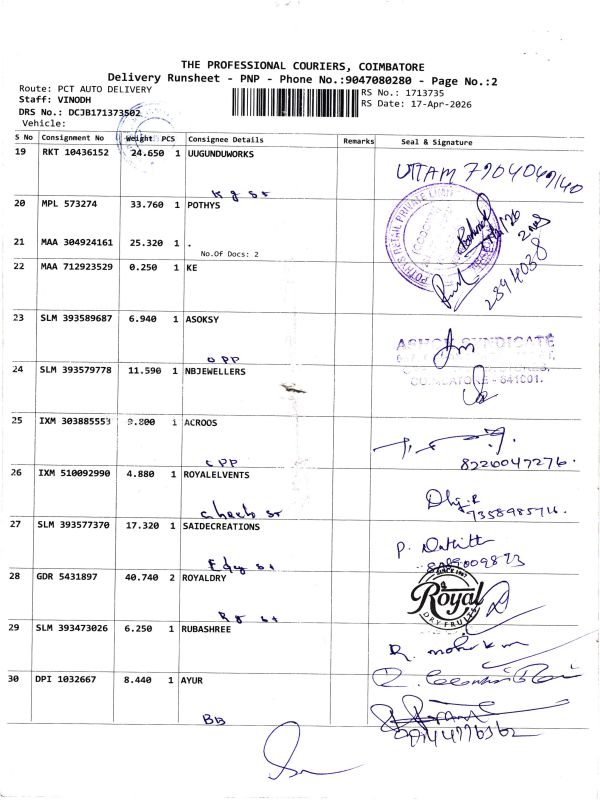 THE PROFESSIONAL COURIERS, COIMBATORE
Delivery Runsheet - PNP - Phone No.:9047080280 - Page No.:2
Route: PCT AUTO DELIVERY
RS No.: 1713735
Staff: VINODH
RS Date: 17-Apr-2026
DRS No.: DCJB171373502
Vehicle:
S No Consignment No Weight PCS Consignee Details Remarks Seal & Signature
19 RKT 10436152 24.650 1 UUGUNDUWORKS
UTTAM 7904049140
Kg St
20 MPL 573274 33.760 1 POTHYS
POTHYS RETAIL PRIVATE LIMITED
21 MAA 304924161 25.320 1 .
No.Of Docs: 2
22 MAA 712923529 0.250 1 KE
2894038
23 SLM 393589687 6.940 1 ASOKSY
ASHOK SYNDICATE
OPP
COIMBATORE - 641001.
24 SLM 393579778 11.590 1 NBJEWELLERS
25 IXM 303885553 9.800 1 ACROOS
OPP
8220047276.
26 IXM 510092990 4.880 1 ROYALELVENTS
7358985716.
St
27 SLM 393577370 17.320 1 SAIDECREATIONS
P.
St
28 GDR 5431897 40.740 2 ROYALDRY
SINCE 1967
Royal
DRY FRUITS
St
29 SLM 393473026 6.250 1 RUBASHREE
30 DPI 1032667 8.440 1 AYUR
BB